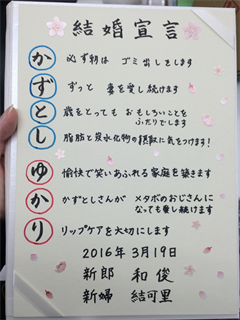 結婚宣言
か 必ず朝は ゴミ出しをします
ず ずっと 妻を愛し続けます
と 歳をとっても おもしろいことを
ふたりでします
し 脂肪と炭水化物の摂取に気をつけます!
ゆ 愉快で笑いあふれる家庭を築きます
か かずとしさんが メタボのおじさんに
なっても愛し続けます
り リップケアを大切にします
2016年 3月19日
新郎 和俊
新婦 結可里